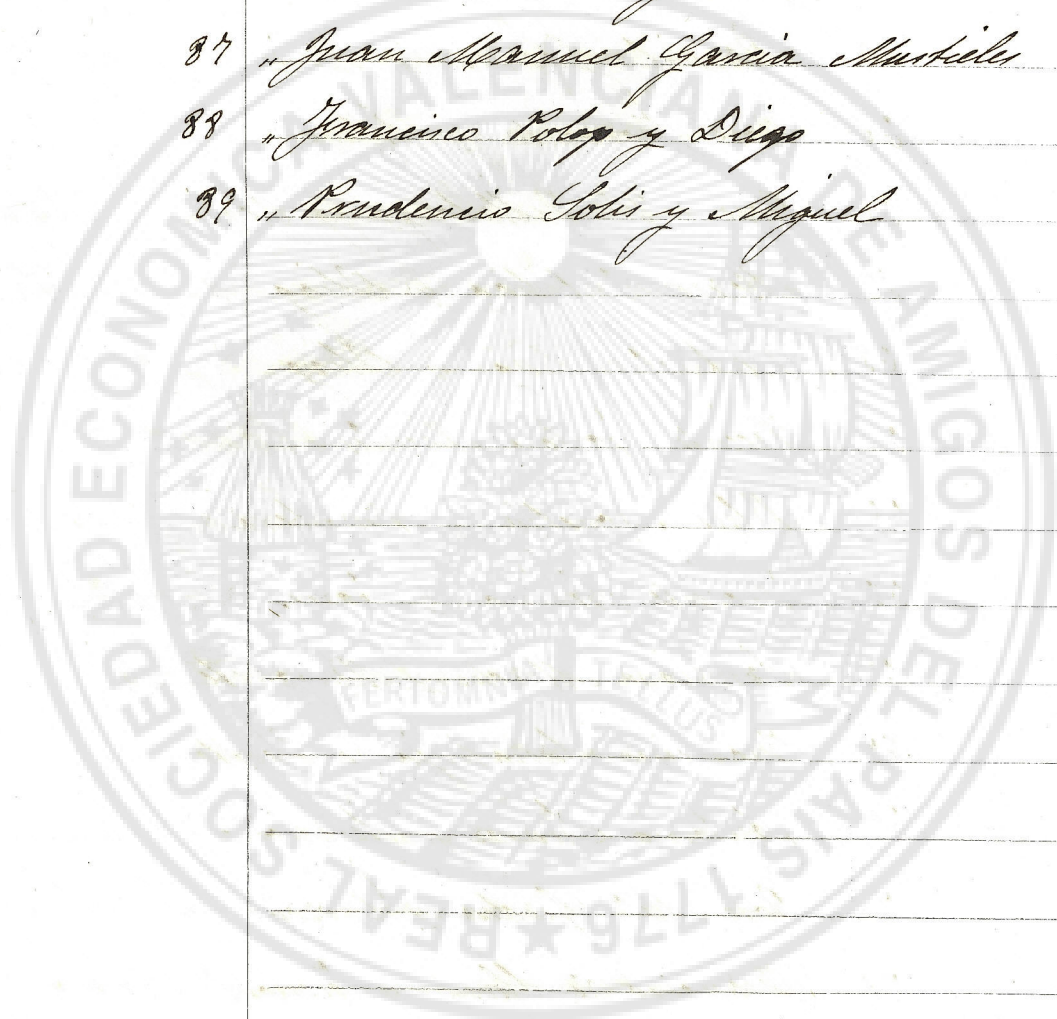 37 „ Juan Manuel Garcia Mustieles
38 „ Francisco Polop y Diego
39 „ Prudencio Solis y Miguel
REAL SOCIEDAD ECONOMICA VALENCIANA DE AMIGOS DEL PAIS 1776